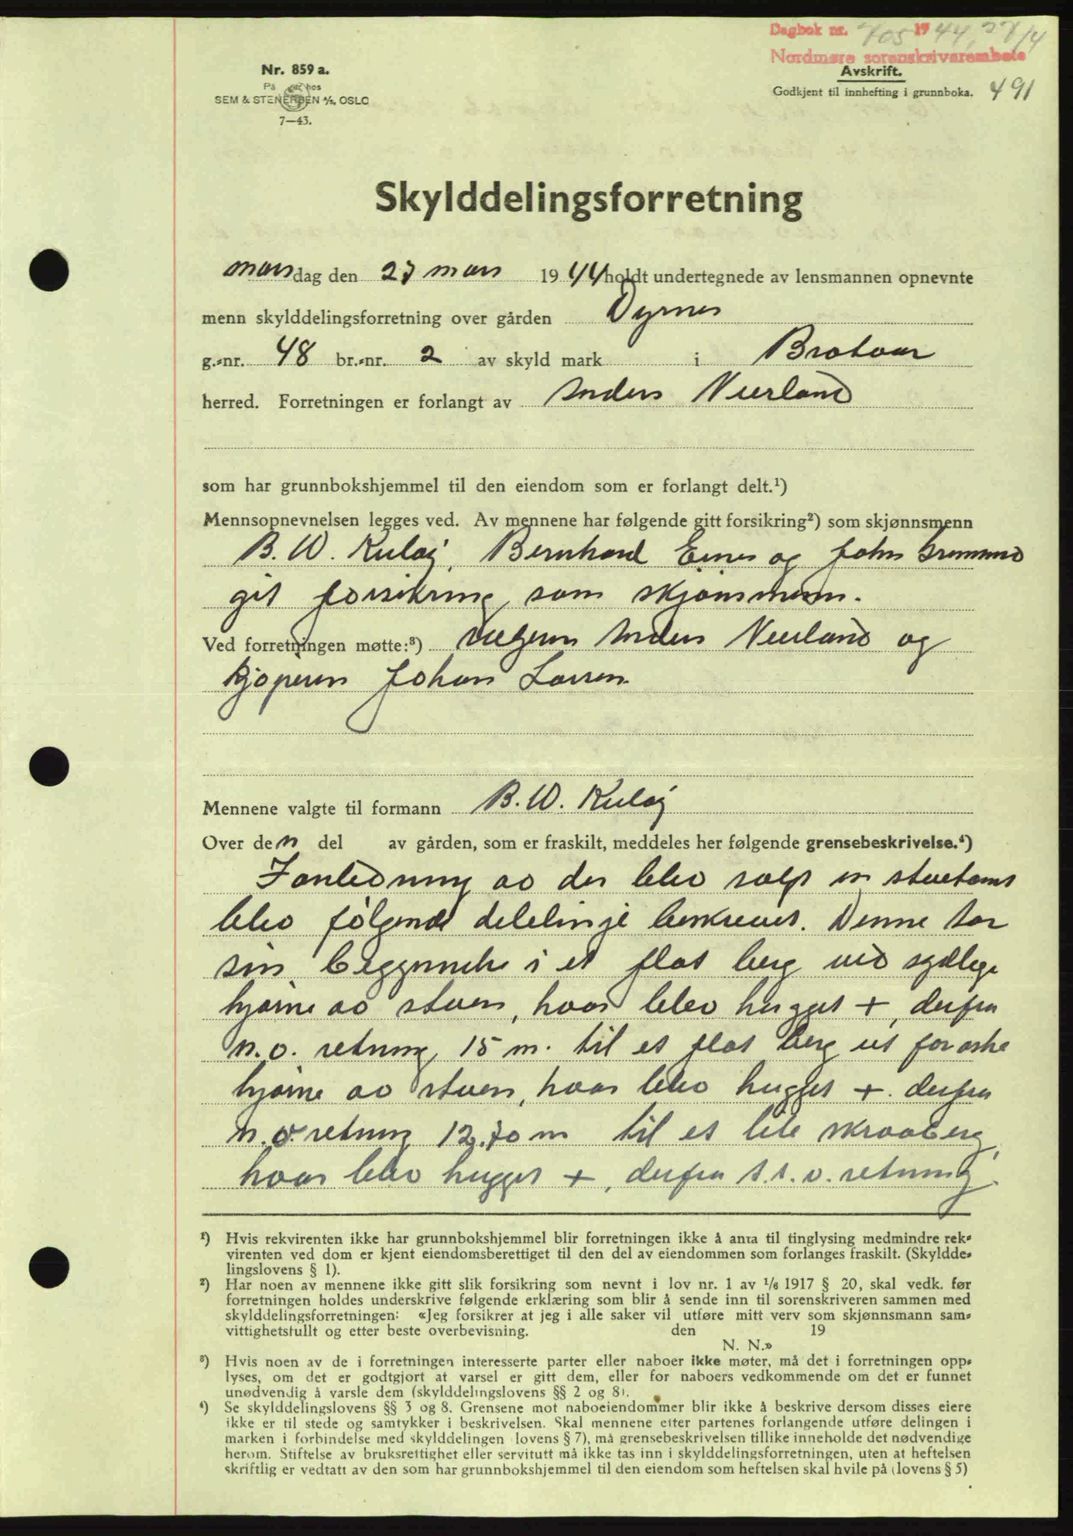 Dagbok nr. 705 1944, 27/4
Nordmøre sorenskriverembete
Nr. 859 a.
På lager hos
SEM & STENERSEN A/S, OSLO
7—43.
Avskrift.
Godkjent til innhefting i grunnboka. 491
Skylddelingsforretning
mandag den 27 mars 1944 holdt undertegnede av lensmannen opnevnte
menn skylddelingsforretning over gården Dyrnes
g.-nr. 48 br.-nr. 2 av skyld mark i Bratvær
herred. Forretningen er forlangt av Anders Neerland
som har grunnbokshjemmel til den eiendom som er forlangt delt.¹)
Mennsopnevnelsen legges ved. Av mennene har følgende gitt forsikring²) som skjønnsmenn
B. W. Kuløy, Bernhard Eines og John
git forsikring som skjønnsmenn.
Ved forretningen møtte:³) selgeren Anders Neerland og
kjøperen Johan Larsen
Mennene valgte til formann B. W. Kuløy
Over den del av gården, som er fraskilt, meddeles her følgende grensebeskrivelse.⁴)
I anledning av der blev solgt en stuetomt
blev følgende delelinje beskrevet. Denne tar
sin begynnelse i et flat berg ved sydlige
hjørne av stuen, hvor blev hugget +, derfra
n.o. retning 15 m. til et flat berg ut for østre
hjørne av stuen, hvor blev hugget +. derfra
n.v. retning 12,70 m til et lite skraaberg,
hvor blev hugget +, derfra s.s.v. retning
¹) Hvis rekvirenten ikke har grunnbokshjemmel blir forretningen ikke å anta til tinglysing medmindre rek-
virenten ved dom er kjent eiendomsberettiget til den del av eiendommen som forlanges fraskilt. (Skyldde-
lingslovens § 1).
²) Har noen av mennene ikke gitt slik forsikring som nevnt i lov nr. 1 av 1/6 1917 § 20, skal vedk. før
forretningen holdes underskrive følgende erklæring som blir å sende inn til sorenskriveren sammen med
skylddelingsforretningen: «Jeg forsikrer at jeg i alle saker vil utføre mitt verv som skjønnsmann sam-
vittighetsfullt og etter beste overbevisning. den 19
N. N.»
³) Hvis noen av de i forretningen interesserte parter eller naboer ikke møter, må det i forretningen opp-
lyses, om det er godtgjort at varsel er gitt dem, eller for naboers vedkommende om det er funnet
unødvendig å varsle dem (skylddelingslovens §§ 2 og 8).
⁴) Se skylddelingslovens §§ 3 og 8. Grensene mot naboeiendommer blir ikke å beskrive dersom disses eiere
ikke er til stede og samtykker i beskrivelsen. Skal mennene etter partenes forlangende utføre delingen i
marken i forbindelse med skylddelingen (lovens § 7), må grensebeskrivelsen tillike inneholde det nødvendige
herom. Stiftelse av bruksrettighet eller servitutt må ikke tas inn i skylddelingsforretningen, uten at heftelsen
skriftlig er vedtatt av den som har grunnbokshjemmel til den eiendom som heftelsen skal hvile på (lovens § 5)